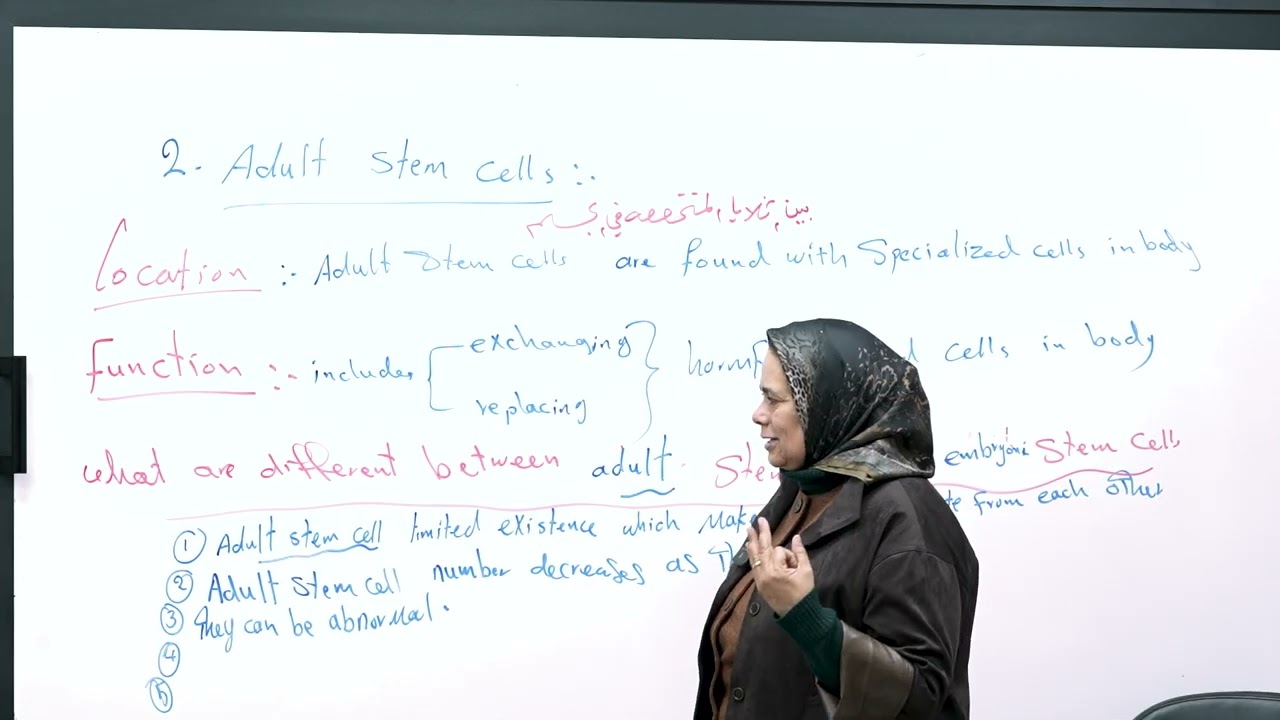 2. Adult Stem Cells :-
Location :- Adult Stem cells are found with Specialized cells in body
function :- includes exchanging replacing cells in body
what are different between adult embryonic Stem Cells
① Adult stem cell limited existence which from each other
② Adult Stem cell number decreases as
③ They can be abnormal.
④
⑤